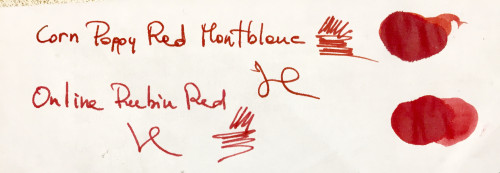 Corn Poppy Red Montblanc
Online Rubin Red